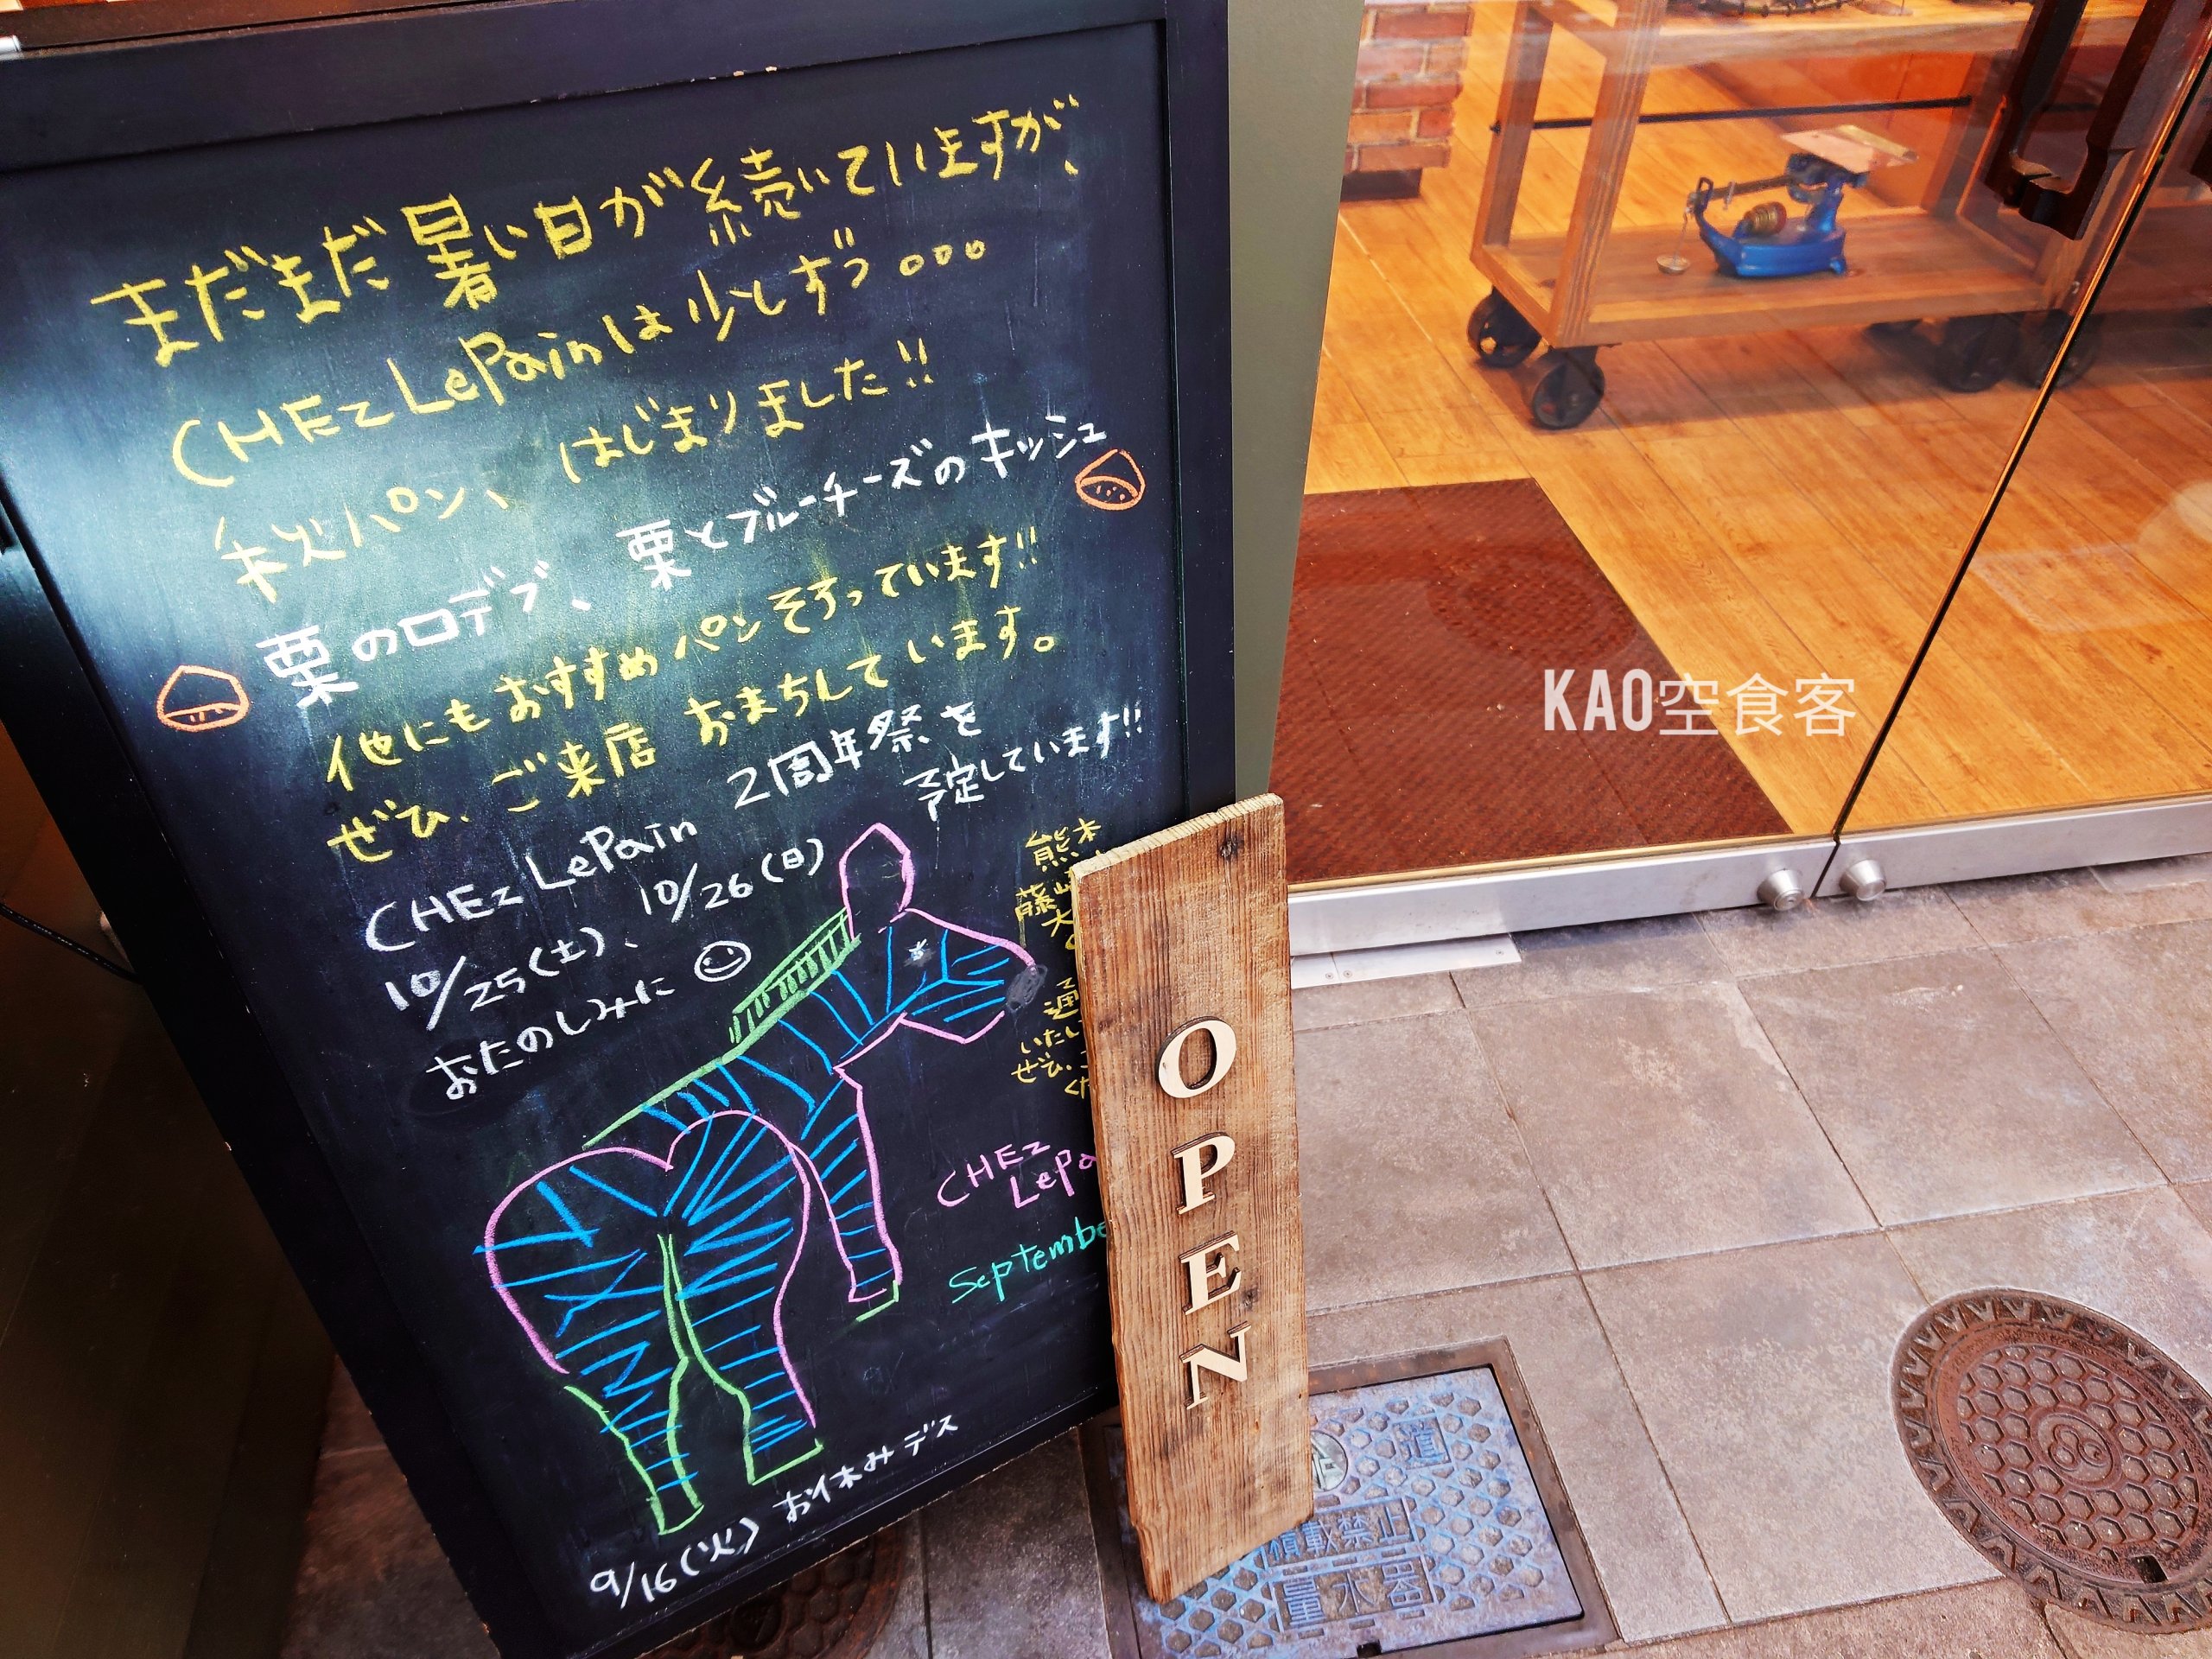 まだまだ暑い日が続いていますが、
CHEz LePainは少しずつ。。。
秋パン、はじまりました!!
栗のロデブ、栗とブルーチーズのキッシュ
他にもおすすめパンそろっています!!
ぜひ、ご来店おまちしています。
CHEz LePain 2周年祭を
10/25(土)、10/26(日) 予定しています!!
おたのしみに
熊本
藤
大
通
いた
ぜひ、
CHEz
LePa
Septembe
9/16(火) お休みデス
OPEN
KAO空食客
積載禁止
量水器